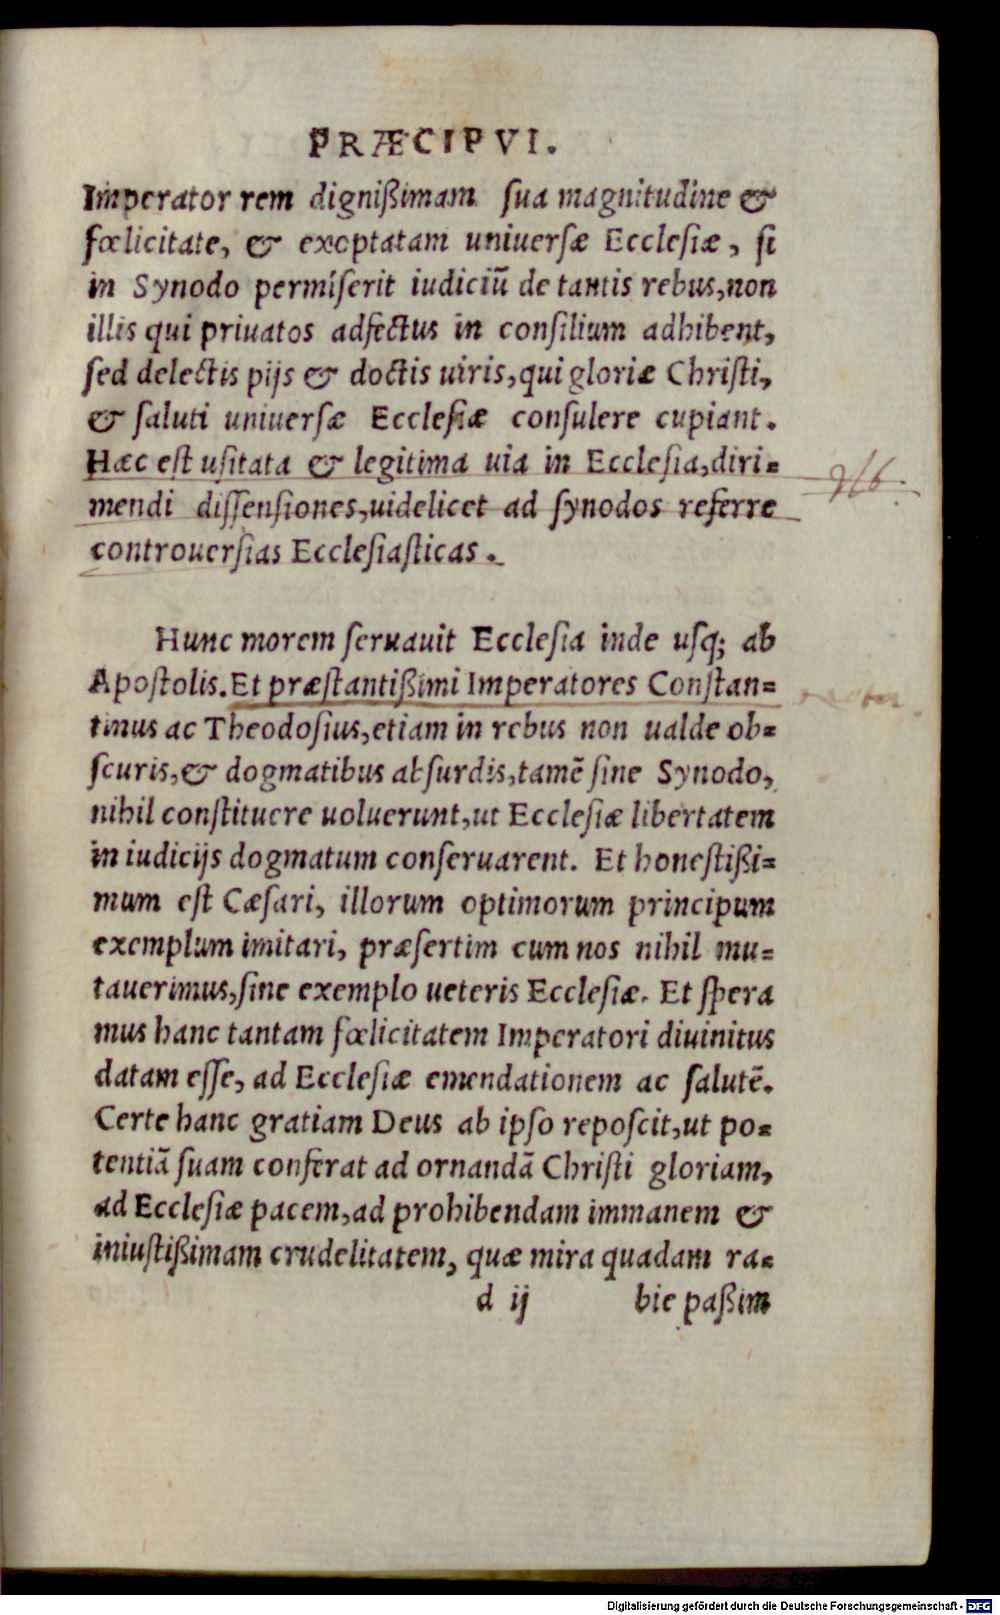 PRÆCIPVI.
Imperator rem dignißimam sua magnitudine &
fœlicitate, & exoptatam uniuersæ Ecclesiæ, si
in Synodo permiserit iudiciũ de tantis rebus, non
illis qui priuatos adfectus in consilium adhibent,
sed delectis pijs & doctis uiris, qui gloriæ Christi,
& saluti uniuersæ Ecclesiæ consulere cupiant.
Hæc est usitata & legitima uia in Ecclesia, diri=
mendi dissensiones, uidelicet ad synodos referre
controuersias Ecclesiasticas.
Hunc morem seruauit Ecclesia inde usq; ab
Apostolis. Et præstantißimi Imperatores Constan=
tinus ac Theodosius, etiam in rebus non ualde ob=
scuris, & dogmatibus absurdis, tamẽ sine Synodo,
nihil constituere uoluerunt, ut Ecclesiæ libertatem
in iudicijs dogmatum conseruarent. Et honestißi=
mum est Cæsari, illorum optimorum principum
exemplum imitari, præsertim cum nos nihil mu=
tauerimus, sine exemplo ueteris Ecclesiæ. Et spera
mus hanc tantam fœlicitatem Imperatori diuinitus
datam esse, ad Ecclesiæ emendationem ac salutẽ.
Certe hanc gratiam Deus ab ipso reposcit, ut po=
tentiã suam conferat ad ornandã Christi gloriam,
ad Ecclesiæ pacem, ad prohibendam immanem &
iniustißimam crudelitatem, quæ mira quadam ra=
d ij bie paßim
Digitalisierung gefördert durch die Deutsche Forschungsgemeinschaft - DFG